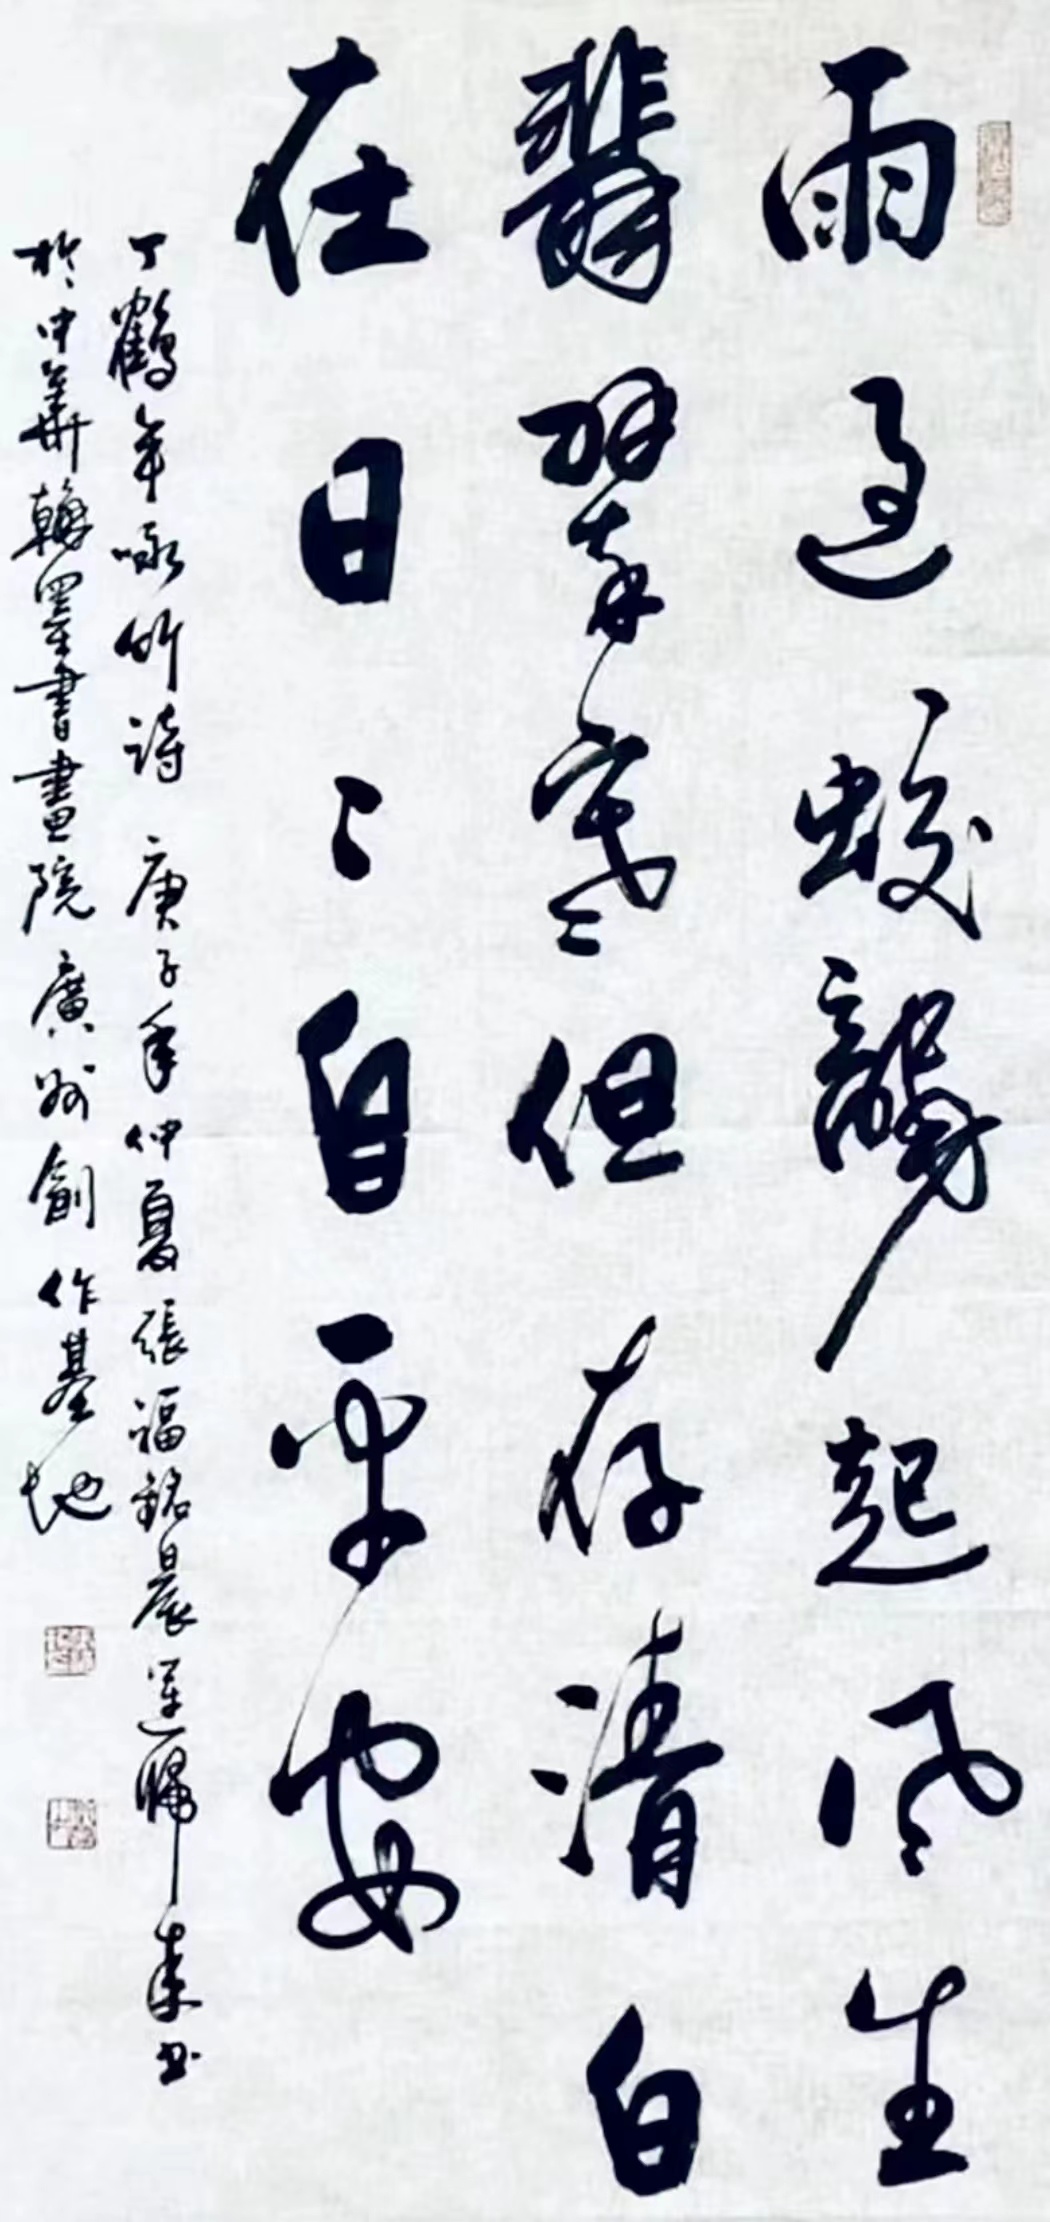 雨過蛟龍起風生
翡翠寒但存清白
在日〻自平安
丁鶴年咏竹詩 庚子年仲夏張福銘晨運歸來書
於中華翰墨書畫院廣州創作基地